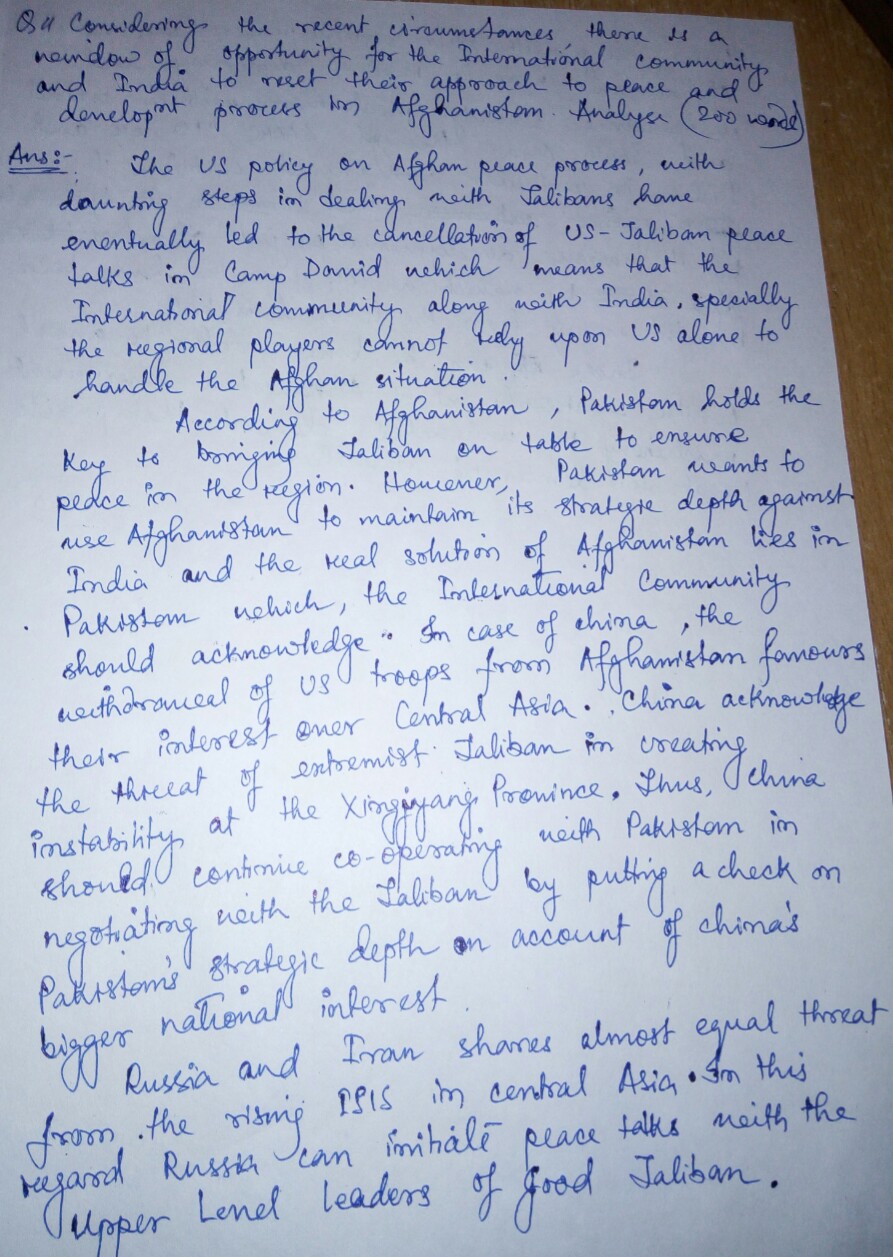 Q4 Considering the recent circumstances there is a
window of opportunity for the International community
and India to reset their approach to peace and
developnt process in Afghanistan. Analyse (200 words)
Ans:- The US policy on Afghan peace process, with
daunting steps in dealing with Talibans have
eventually led to the cancellation of US-Taliban peace
talks in Camp David which means that the
International community along with India, specially
the regional players cannot rely upon US alone to
handle the Afghan situation.
According to Afghanistan, Pakistan holds the
Key to bringing Taliban on table to ensure
peace in the region. However, Pakistan wants to
use Afghanistan to maintain its strategic depth against
India and the real solution of Afghanistan lies in
Pakistan which, the International Community
should acknowledge. In case of china, the
withdrawal of US troops from Afghanistan favours
their interest over Central Asia. China acknowledge
the threat of extremist Taliban in creating
instability at the Xingjyang Province. Thus, China
should continue co-operating with Pakistan in
negotiating with the Taliban by putting a check on
Pakistan's strategic depth on account of china's
bigger national interest.
Russia and Iran shares almost equal threat
from the rising ISIS in central Asia. In this
regard Russia can initiate peace talks with the
Upper Level leaders of good Taliban.